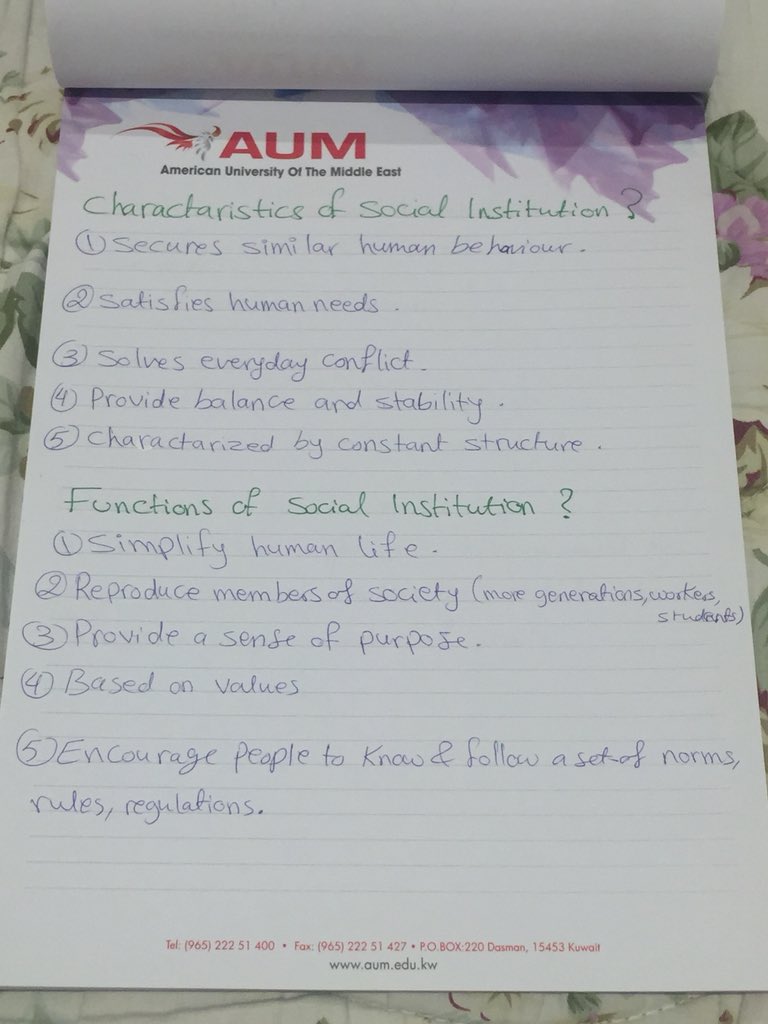 AUM
American University Of The Middle East
Charactaristics of Social Institution ?
① Secures similar human behaviour.
② Satisfies human needs.
③ Solves everyday conflict.
④ Provide balance and stability.
⑤ Charactarized by constant structure.
Functions of Social Institution ?
① Simplify human life.
② Reproduce members of society (more generations, workers,
students)
③ Provide a sense of purpose.
④ Based on values
⑤ Encourage people to know & follow a set of norms,
rules, regulations.
Tel: (965) 222 51 400 • Fax: (965) 222 51 427 • P.O.BOX:220 Dasman, 15453 Kuwait
www.aum.edu.kw